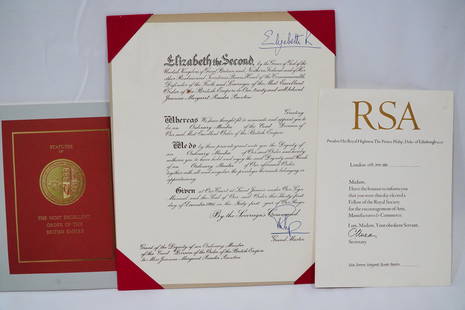 STATUTES
OF
THE MOST EXCELLENT
ORDER OF THE
BRITISH EMPIRE
Elizabeth R
Elizabeth the Second, by the Grace of God of the
United Kingdom of Great Britain and Northern Ireland and of Her
other Realms and Territories Queen, Head of the Commonwealth,
Defender of the Faith and Sovereign of the Most Excellent
Order of the British Empire to Our trusty and well beloved
Margaret
Greeting
Whereas We have thought fit to nominate and appoint you to
be an Ordinary Member of the Civil Division of
Our said Most Excellent Order of the British Empire
We do by these presents grant unto you the Dignity of
an Ordinary Member of Our said Order and hereby
authorise you to have hold and enjoy the said Dignity and Rank
of an Ordinary Member of Our aforesaid Order
together with all and singular the privileges thereunto belonging or
appertaining
Given at Our Court at Saint James's under Our Sign
Manual and the Seal of Our said Order this
day of in the year of Our Reign
By the Sovereign's Command
Grand Master
Grant of the Dignity of an Ordinary Member
of the Civil Division of the Order of the British Empire
to Margaret
RSA
President His Royal Highness The Prince Philip, Duke of Edinburgh
London
Madam,
I have the honour to inform you
that you were this day elected a
Fellow of the Royal Society
for the encouragement of Arts,
Manufactures & Commerce.
I am, Madam, Your obedient Servant,
Secretary